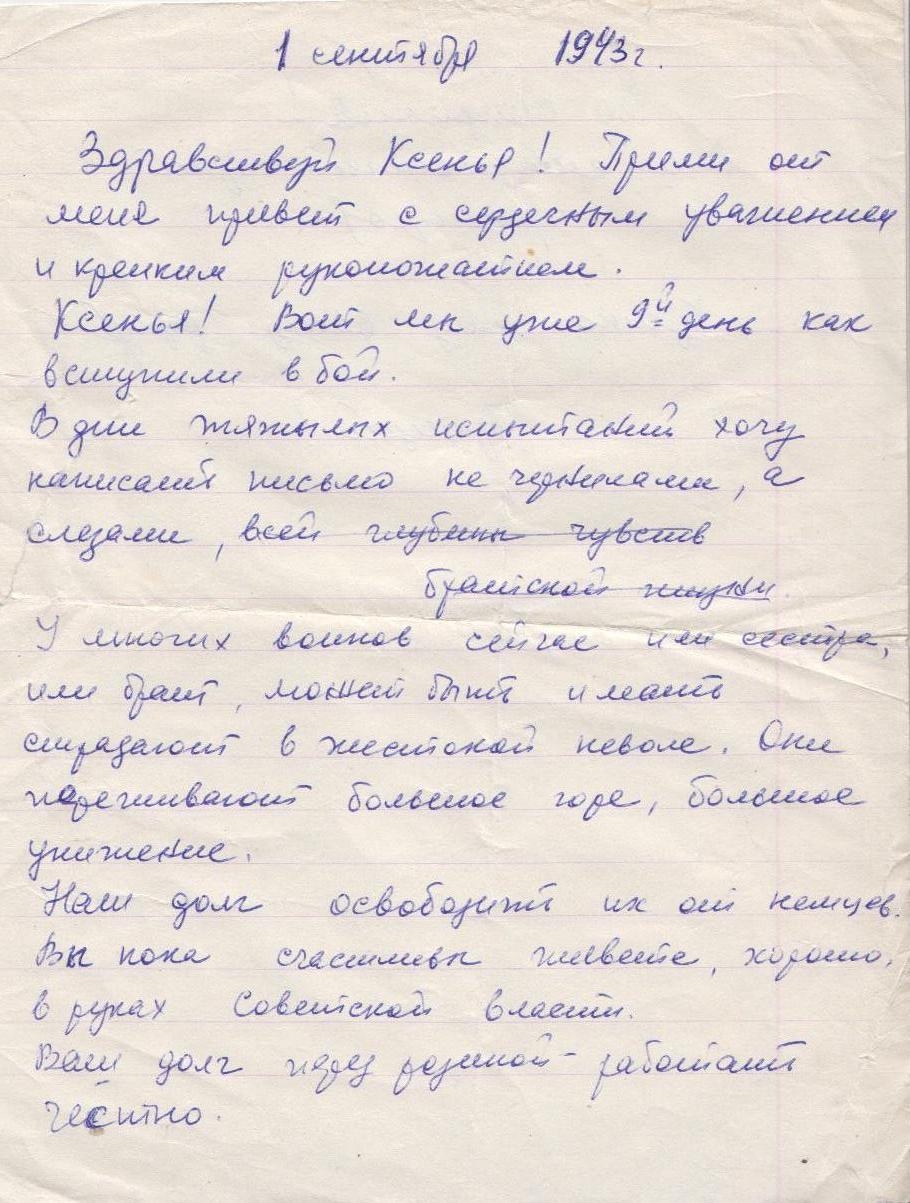 1 сентября 1943 г.
Здравствуй Ксенья! Прими от
меня привет с сердечным уважением
и крепким рукопожатием.
Ксенья! Вот мы уже 9й день как
вступили в бой.
В дни тяжылых испытаний хочу
написать письмо не чернилами, а
слезами, всей глубины чувств
братской жизни.
У многих воинов сейчас или сестра,
или брат, может быть и мать
страдают в жестокой неволе. Они
переживают большое горе, большое
унижение.
Наш долг освободить их от немцев.
Вы пока счастливы живёте, хорошо,
в руках Советской власти.
Ваш долг перед родиной - работать
честно.